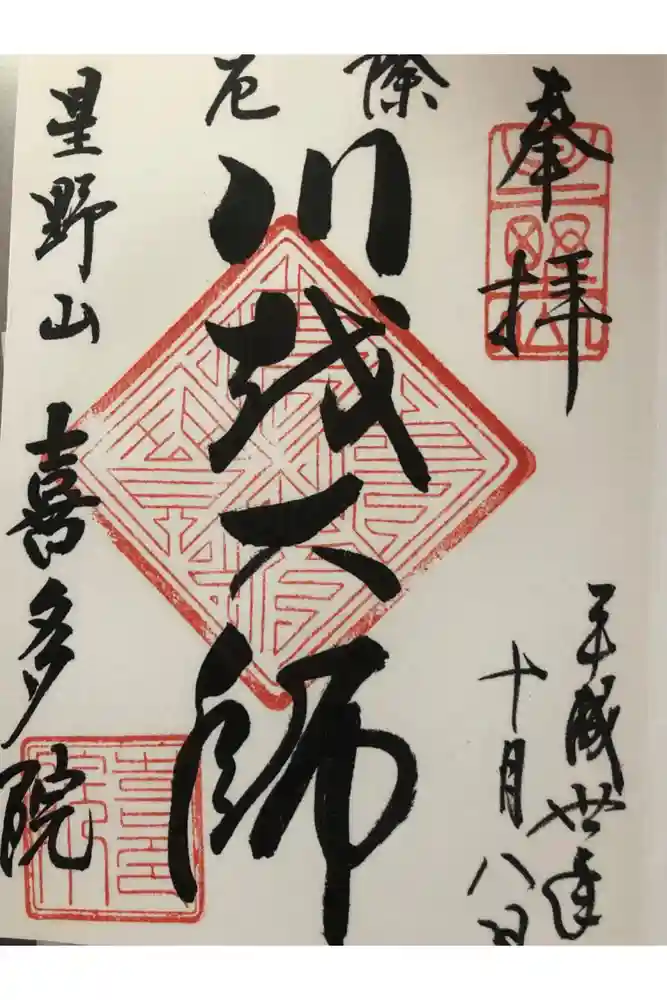 奉拝
平成卅年
十月八日
厄除
川越大師
星野山
喜多院